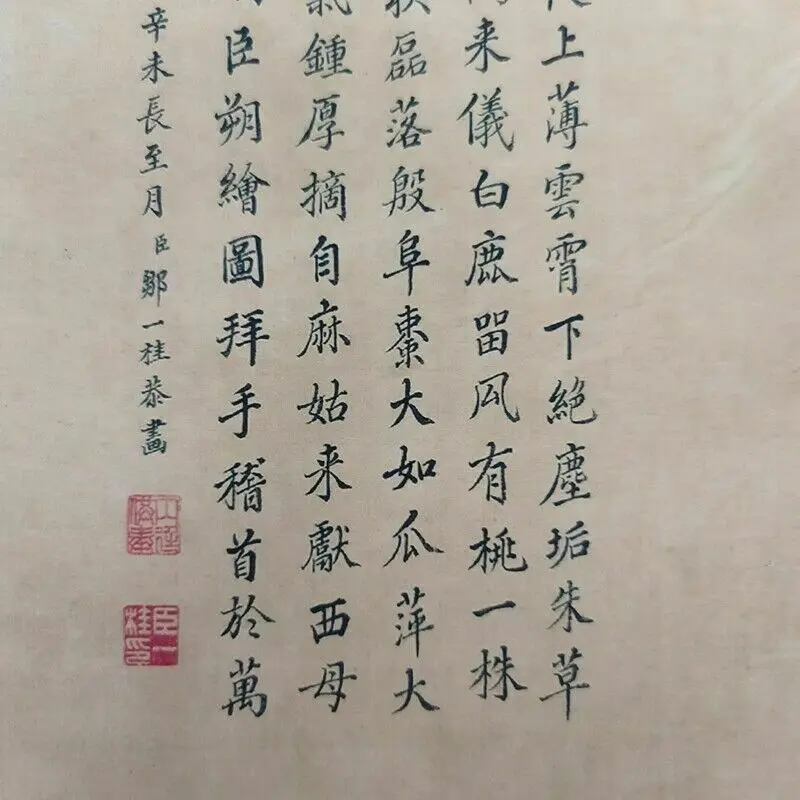 上薄雲霄下絕塵垢朱草
来儀白鹿畱凨有桃一株
磊落殷阜棗大如瓜萍大
鍾厚摘自麻姑来獻西母
臣朔繪圖拜手稽首於萬
辛未長至月臣鄒一桂恭畫
臣一桂印